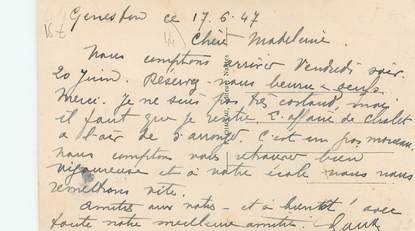 Geneston ce 17.6.47
Chère Madeleine.
Nous comptons arriver Vendredi soir
20 Juin. Réservez-nous beurre - œufs
Merci. Je ne suis pas très costaud, mais
il faut que je rentre. L'affaire de Chalet
a l'air de s'arranger. C'est un gros morceau.
nous comptons vous retrouver bien
vigoureuse et à votre école nous nous
remettrons vite.
amitiés aux votres - et à bientôt avec
toute notre meilleure amitié.